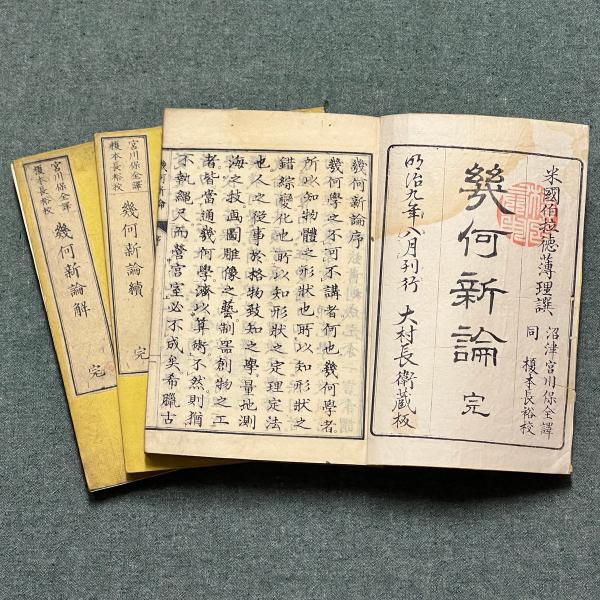 米國伯拉德薄理譔
沼津 宮川保全譯
同 榎本長裕校
幾何新論 完
明治九年八月刊行 大村長衛蔵板
幾何新論序
幾何學之不可不講者何也幾何學者
所以知物體之形狀也所以知形狀之
錯綜變化也所以知形狀之定理定法
也人之從事於格物致知之學量地測
海之技画圖雕像之藝制器創物之工
者皆當通幾何學濟以算術不然則猶
不執繩尺而營宮室必不成矣希臘古
幾何新論
宮川保全譯
榎本長裕校
幾何新論續 完
宮川保全譯
榎本長裕校
幾何新論解 完